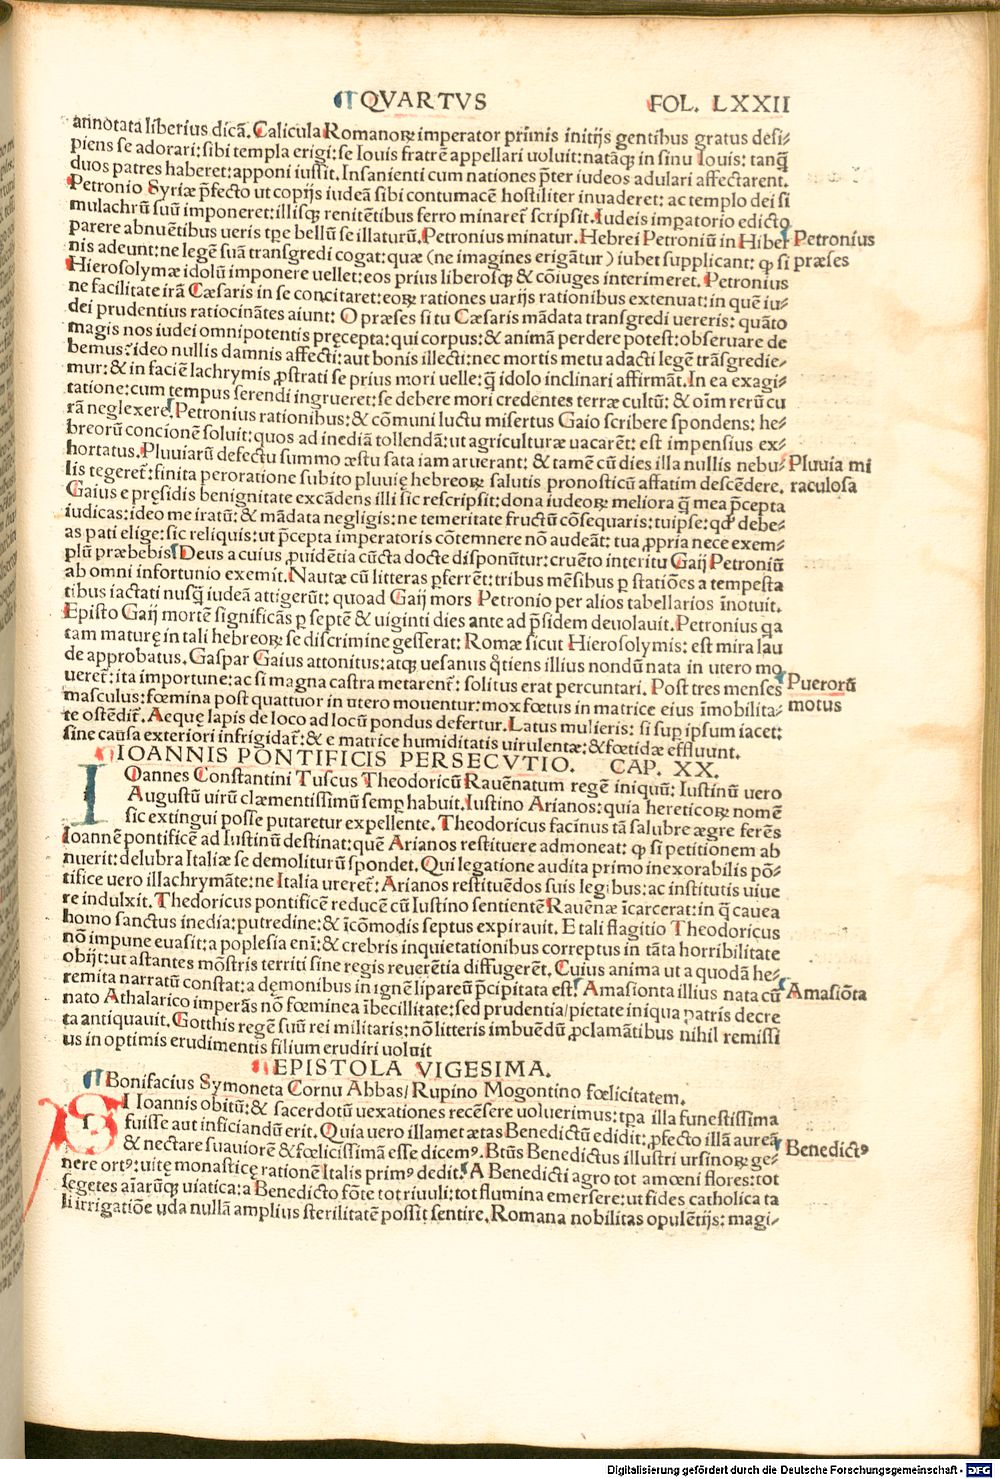 ¶QVARTVS FOL. LXXII
annotata liberius dicā. Calicula Romanoꝝ imperator primis initijs gentibus gratus desi⸗
piens se adorari: sibi templa erigi: se Iouis fratrē appellari uoluit: natāqȝ in sinu Iouis: tanq̄
duos patres haberet: apponi iussit. Insanienti cum nationes p̄ter iudeos adulari affectarent.
Petronio Syriæ p̄fecto ut copijs iudeā sibi contumacē hostiliter inuaderet: ac templo dei si
mulachrū suū imponeret: illisqȝ renitētibus ferro minaret̄ scripsit. Iudeis imꝑatorio edicto
parere abnuētibus ueris tꝑe bellū se illaturū. Petronius minatur. Hebrei Petroniū in Hiber
nis adeunt: ne legē suā transgredi cogat: quæ (ne imagines erigātur) iubet supplicant: ꝙ si
Hierosolymæ idolū imponere uellet: eos prius liberosqȝ & cōiuges interimeret. Petronius
ne facilitate irā Cæsaris in se concitaret: eoꝝ rationes uarijs rationibus extenuat: in quē iu⸗
dei prudentius ratiocinātes aiunt: O præses si tu Cæsaris mādata transgredi uereris: quāto
magis nos iudei omnipotentis pręcepta: qui corpus: & animā perdere potest: obseruare de
bemus? ideo nullis damnis affecti: aut bonis illecti: nec mortis metu adacti legē trāsgredie⸗
mur: & in faciē lachrymis ꝓstrati se prius mori uelle: q̄ idolo inclinari affirmāt. In ea exagi⸗
tatione: cum tempus serendi ingrueret: se debere mori credentes terræ cultū: & oīm rerū cu
rā neglexere. Petronius rationibus: & cōmuni luctu misertus Gaio scribere spondens: he⸗
breorū concionē soluit: quos ad inediā tollendā: ut agriculturæ uacarēt: est impensius ex⸗
hortatus. Pluuiarū defectu summo æstu sata iam aruerant: & tamē cū dies illa nullis nebu⸗
lis tegeret̄: finita peroratione subito pluuię hebreoꝝ salutis pronosticū affatim descēdere.
Gaius e pręsidis benignitate excādens illi sic rescripsit: dona iudeoꝝ meliora q̄ mea p̄cepta
iudicas: ideo me iratū: & mādata negligis: ne temeritate fructū cōsequaris: tuipse: qd' debe⸗
as pati elige: sic reliquis: ut p̄cepta imperatoris cōtemnere nō audeāt: tua ꝓpria nece exem⸗
plū præbebis. Deus a cuius ꝓuidētia cūcta docte disponūtur: cruēto interitu Gaij Petroniū
ab omni infortunio exemit. Nautæ cū litteras ꝑferrēt: tribus mēsibus ꝑ statiōes a tempesta
tibus iactati nusq̄ iudeā attigerūt: quoad Gaij mors Petronio per alios tabellarios īnotuit.
Episto Gaij mortē significās ꝑ septē & uiginti dies ante ad p̄sidem deuolauit. Petronius qa
tam maturę in tali hebreoꝝ se discrimine gesserat: Romæ sicut Hierosolymis: est mira lau
de approbatus. Gaspar Gaius attonitus: atqȝ uesanus q̄tiens illius nondū nata in utero mo
ueret̄: ita importune: ac si magna castra metarent̄: solitus erat percuntari. Post tres menses
masculus: fœmina post quattuor in utero mouentur: mox fœtus in matrice eius īmobilita⸗
te ostēdit̄. Aeque lapis de loco ad locū pondus defertur. Latus mulieris: si suꝑ ipsum iacet:
sine causa exteriori infrigidat̄: & e matrice humiditatis uirulentæ: & fœtidæ effluunt.
Petronius
præses
Pluuia mi
raculosa
Puerorū
motus
¶IOANNIS PONTIFICIS PERSECVTIO. CAP. XX.
IOannes Constantini Tuscus Theodoricū Rauēnatum regē iniquū: Iustinū uero
Augustū uirū clæmentissimū semꝑ habuit. Iustino Arianos: quia hereticoꝝ nomē
sic extingui posse putaretur expellente. Theodoricus facinus tā salubre ægre ferēs
Ioannē pontificē ad Iustinū destinat: quē Arianos restituere admoneat: ꝙ si petitionem ab
nuerit: delubra Italiæ se demoliturū spondet. Qui legatione audita primo inexorabilis pō⸗
tifice uero illachrymāte: ne Italia ureret̄: Arianos restituēdos suis legibus: ac institutis uiue
re indulxit. Thedoricus pontificē reducē cū Iustino sentientē Rauēnæ īcarcerat: in q̄ cauea
homo sanctus inedia: putredine: & īcōmodis septus expirauit. E tali flagitio Theodoricus
nō impune euasit: a poplesia enī: & crebris inquietationibus correptus in tāta horribilitate
obijt: ut astantes mōstris territi sine regis reuerētia diffugerēt. Cuius anima ut a quodā he⸗
remita narratū constat: a dęmonibus in ignē lipareū p̄cipitata est. Amasionta illius nata cū
nato Athalarico imperās nō fœminea ībecillitate: sed prudentia/ pietate iniqua patris decre
ta antiquauit. Gotthis regē suū rei militaris: nō litteris imbuēdū ꝓclamātibus nihil remissi
us in optimis erudimentis filium erudiri uoluit
Amasiōta
¶EPISTOLA VIGESIMA.
¶Bonifacius Symoneta Cornu Abbas/ Rupino Mogontino fœlicitatem.
SI Ioannis obitū: & sacerdotū uexationes recēsere uoluerimus: tꝑa illa funestissima
fuisse aut inficiandū erit. Quia uero illamet ætas Benedictū edidit: ꝓfecto illā aureā
& nectare suauiorē & fœlicissimā esse dicemꝰ. Btūs Benedictus illustri ursinoꝝ ge⸗
nere ortꝰ: uitę monasticę rationē Italis primꝰ dedit. A Benedicti agro tot amœni flores: tot
segetes aīarūqȝ uiatica: a Benedicto fōte tot riuuli: tot flumina emersere: ut fides catholica ta
li irrigatiōe uda nullā amplius sterilitatē possit sentire. Romana nobilitas opulētijs: magi⸗
Benedictꝰ
Digitalisierung gefördert durch die Deutsche Forschungsgemeinschaft - DFG